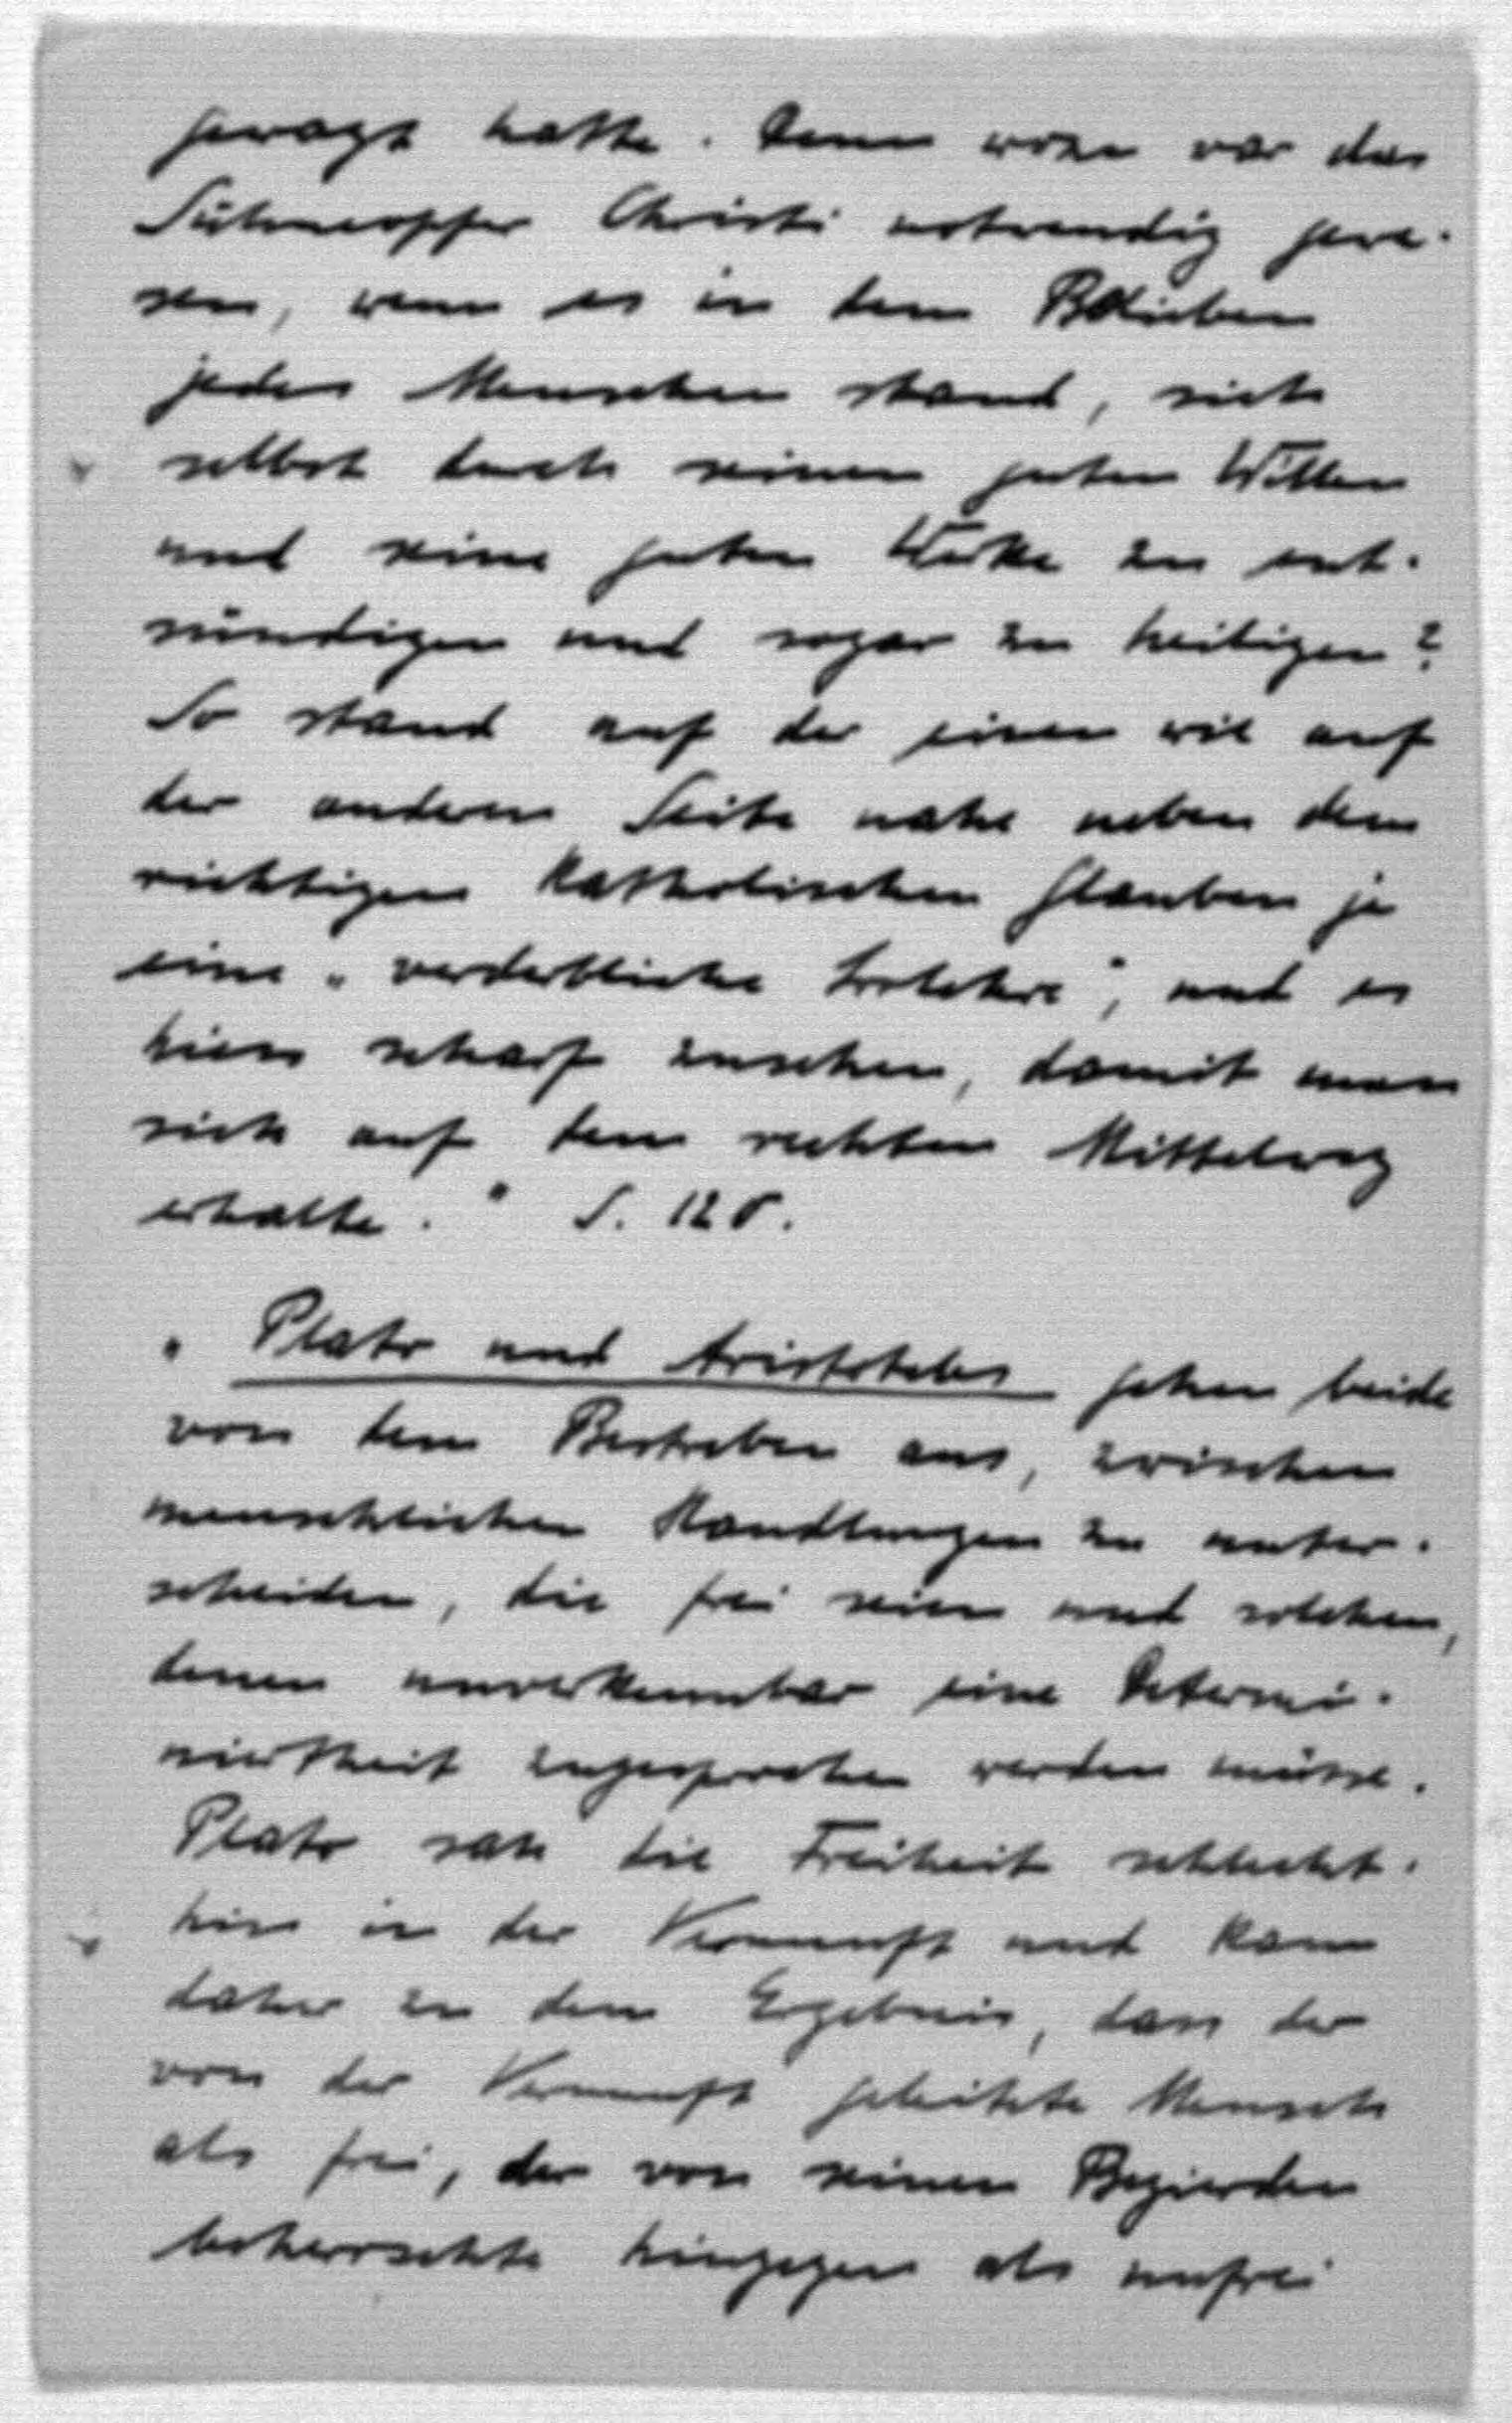 gewagt hatte. Denn wozu war das
Sühneopfer Christi notwendig gewe-
sen, wenn es in dem Belieben
jedes Menschen stand, sich
selbst durch seinen guten Willen
und seine guten Werke zu ent-
sündigen und sogar zu heiligen?
So stand auf der einen wie auf
der anderen Seite nahe neben dem
richtigen katholischen Glauben je
eine „verderbliche Irrlehre", und es
hiess scharf zusehen, damit man
sich auf dem rechten Mittelweg
erhalte." S. 128.
„Plato und Aristoteles gehen beide
von dem Bestreben aus, zwischen
menschlichen Handlungen zu unter-
scheiden, die frei seien und solchen,
denen unverkennbar eine Determi-
niertheit zugesprochen werden müsse.
Plato sah die Freiheit schlecht-
hin in der Vernunft und kam
daher zu dem Ergebnis, dass der
von der Vernunft geleitete Mensch
als frei, der von seinen Begierden
beherrschte hingegen als unfrei